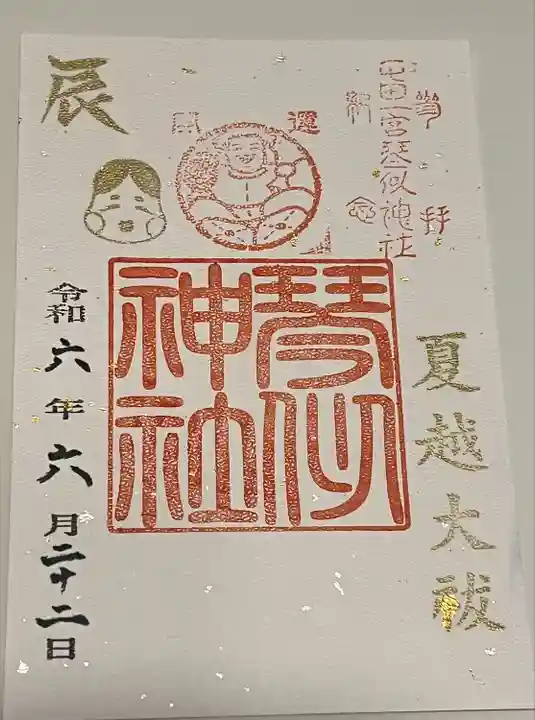 参拝
屯田一宮琴似神社
開運
辰
琴似
神社
夏越大祓
令和六年六月二十二日